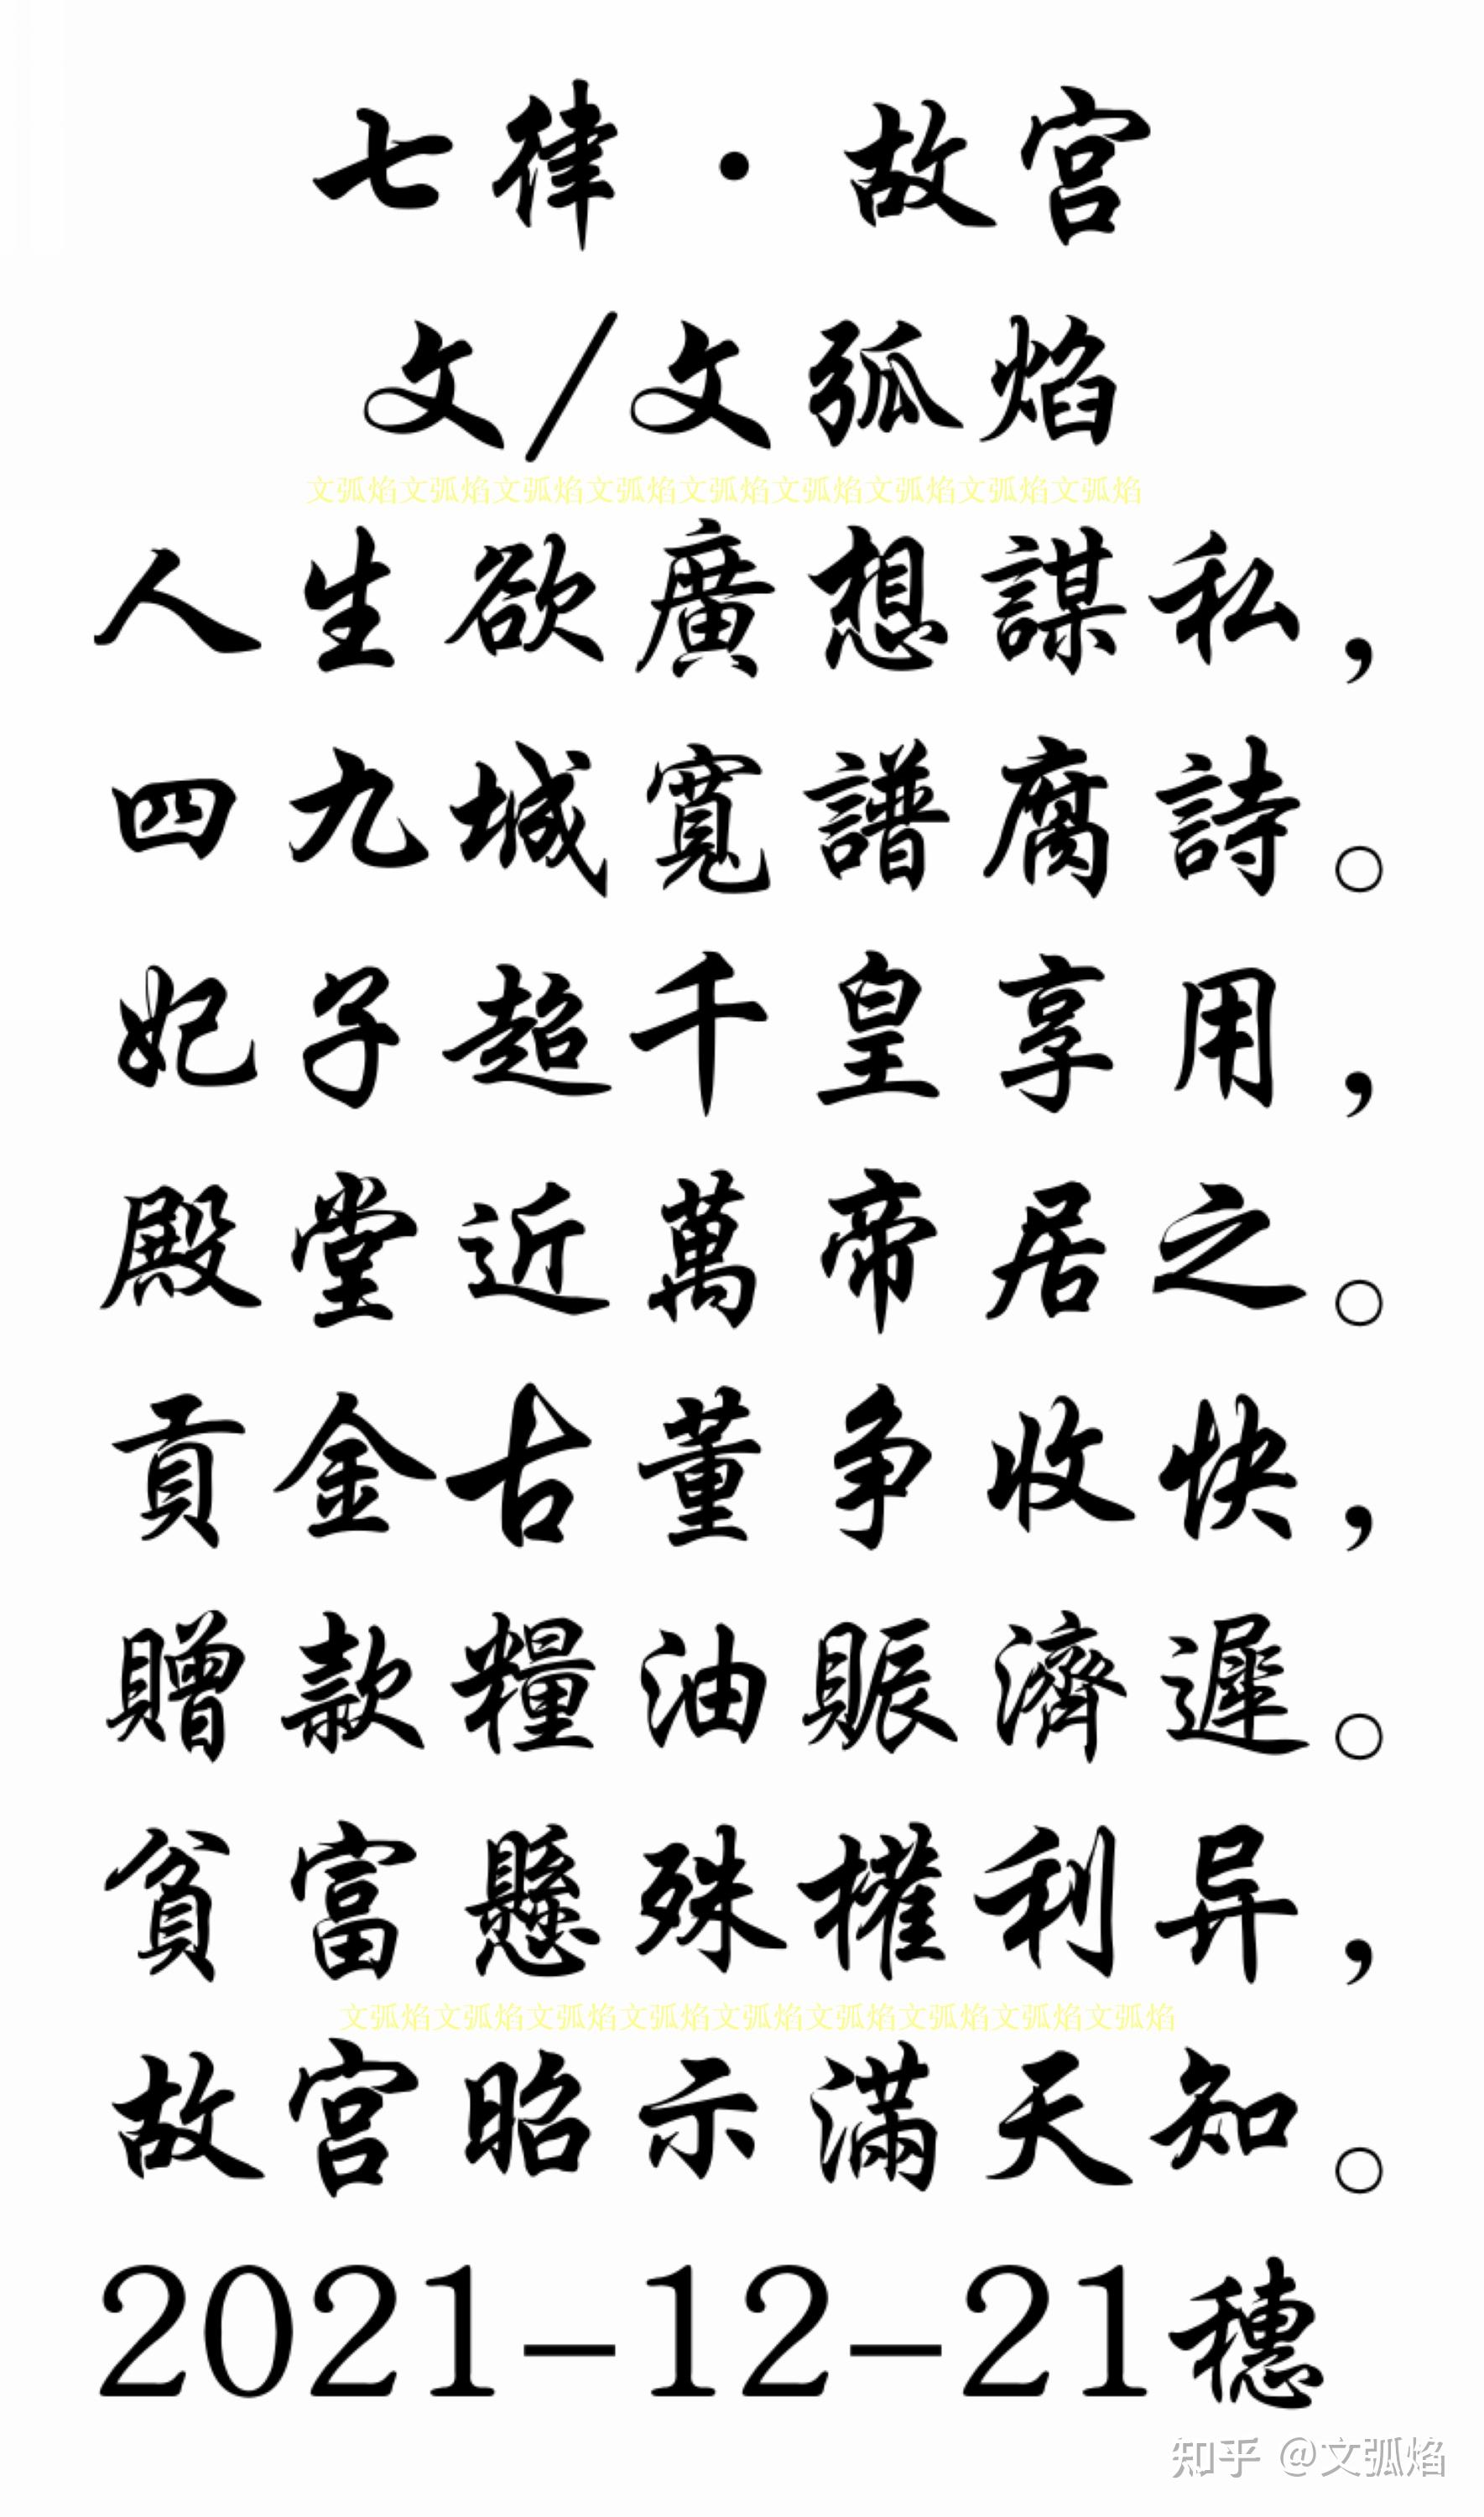 七律·故宫
文/文弧焰
文弧焰文弧焰文弧焰文弧焰文弧焰文弧焰文弧焰文弧焰文弧焰
人生欲廣想謀私，
四九城寬譜腐詩。
妃子超千皇享用，
殿堂近萬帝居之。
貢金古董争收快，
贈款糧油賑濟遲。
貧富懸殊權利异，
文弧焰文弧焰文弧焰文弧焰文弧焰文弧焰文弧焰文弧焰文弧焰
故宫昭示滿天知。
2021-12-21穗
知乎 @文弧焰